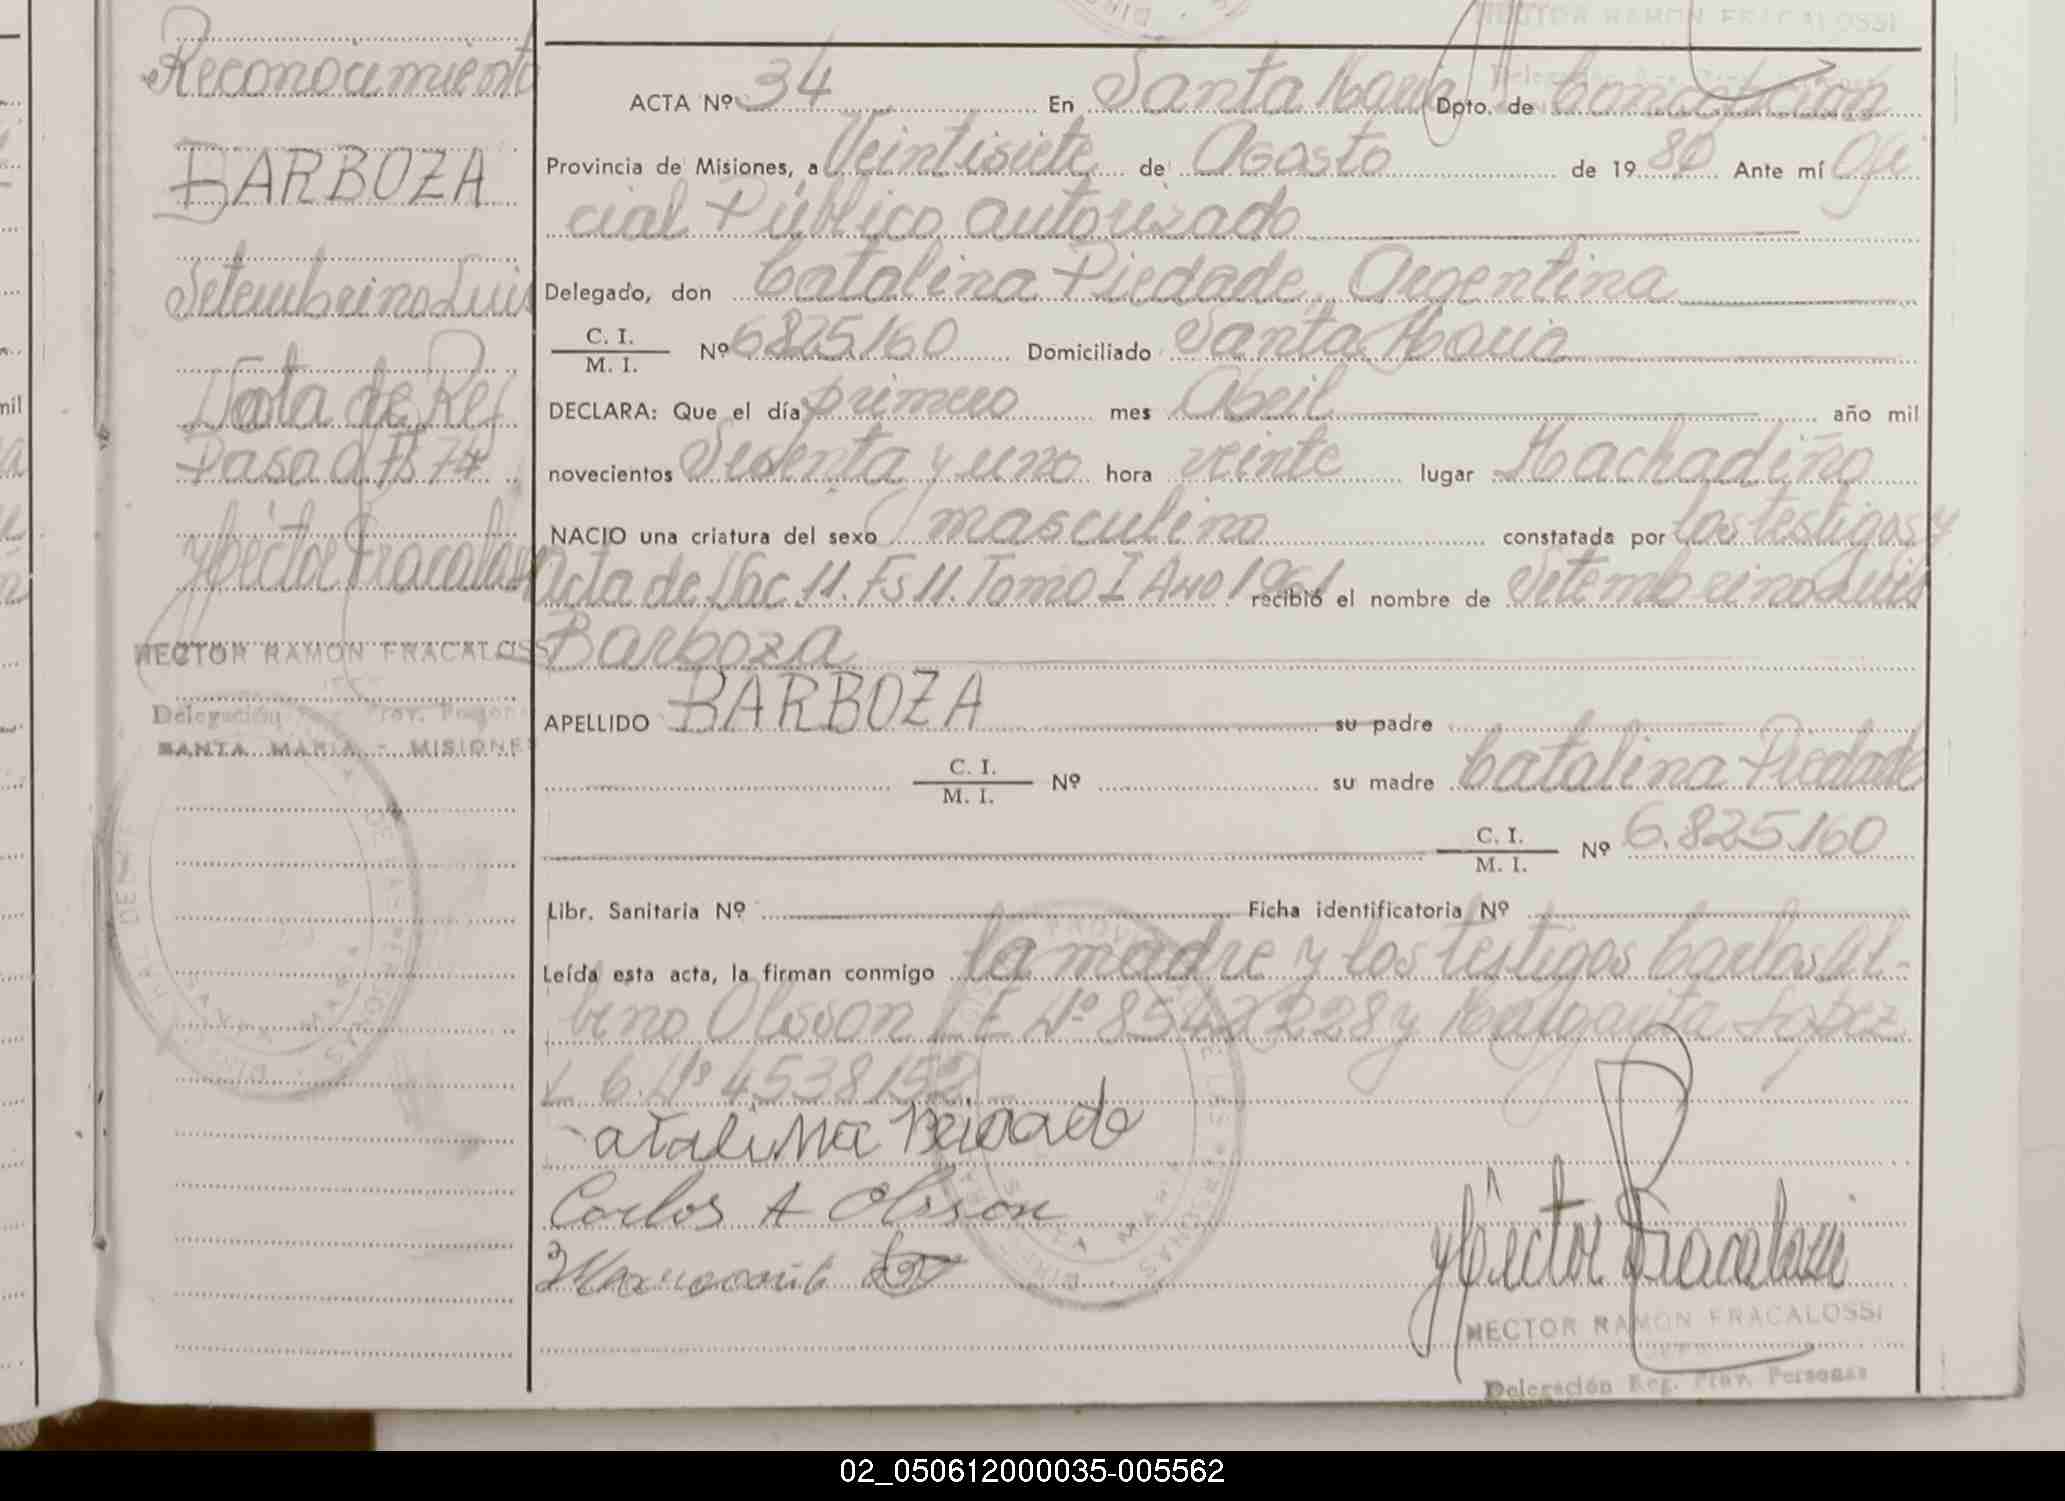 Reconocimiento
BARBOZA
Setembrino Luis
Nota de Ref
Pasa a Fs 74
Héctor Fracalossi
HECTOR RAMON FRACALOSSI
Delegación Reg. Prov. Personas
SANTA MARIA - MISIONES
HECTOR RAMON FRACALOSSI
ACTA Nº 34 En Santa María Dpto. de Concepción
Provincia de Misiones, a Veintisiete de Agosto de 19 80 Ante mí Ofi
cial Público autorizado
Delegado, don Catalina Piedade, Argentina
C. I.
M. I. Nº 6825.160 Domiciliado Santa María
DECLARA: Que el día primero mes Abril año mil
novecientos Sesenta y uno hora veinte lugar Machadiño
NACIO una criatura del sexo masculino constatada por los testigos y
Acta de Nac. 11. Fs 11. Tomo I Año 1961 recibió el nombre de Setembrino Luis
Barboza
APELLIDO BARBOZA su padre
C. I.
M. I. Nº su madre Catalina Piedade
C. I.
M. I. Nº 6.825.160
Libr. Sanitaria Nº Ficha identificatoria Nº
Leída esta acta, la firman conmigo la madre y los testigos Carlos Al-
bino Olsson L E Nº 8542228 y Margarita Lopez
L. C. Nº 4538152
Catalina Peidade
Carlos A Olsson
Héctor Fracalossi
HECTOR RAMON FRACALOSSI
Delegación Reg. Prov. Personas
02_050612000035-005562